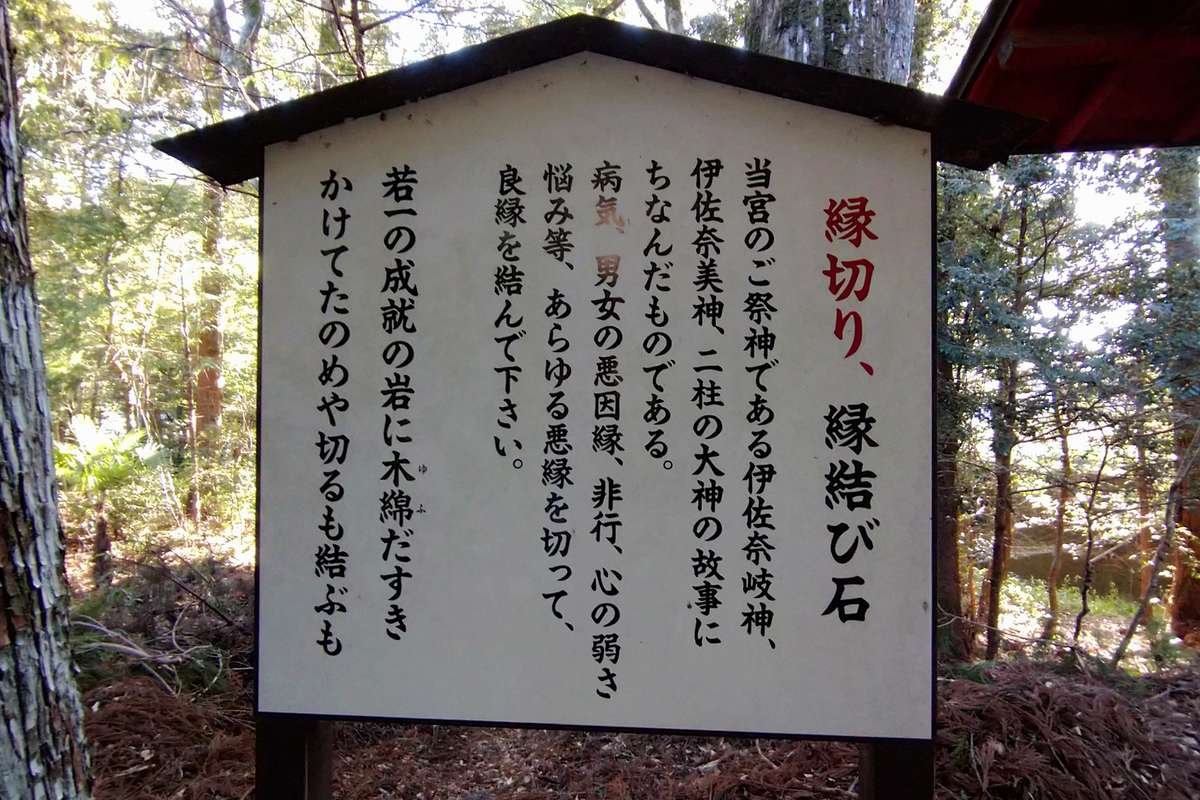 縁切り、縁結び石
当宮のご祭神である伊佐奈岐神、
伊佐奈美神、二柱の大神の故事に
ちなんだものである。
病気、男女の悪因縁、非行、心の弱さ
悩み等、あらゆる悪縁を切って、
良縁を結んで下さい。
若一の成就の岩に木綿だすき
ゆふ
かけてたのめや切るも結ぶも